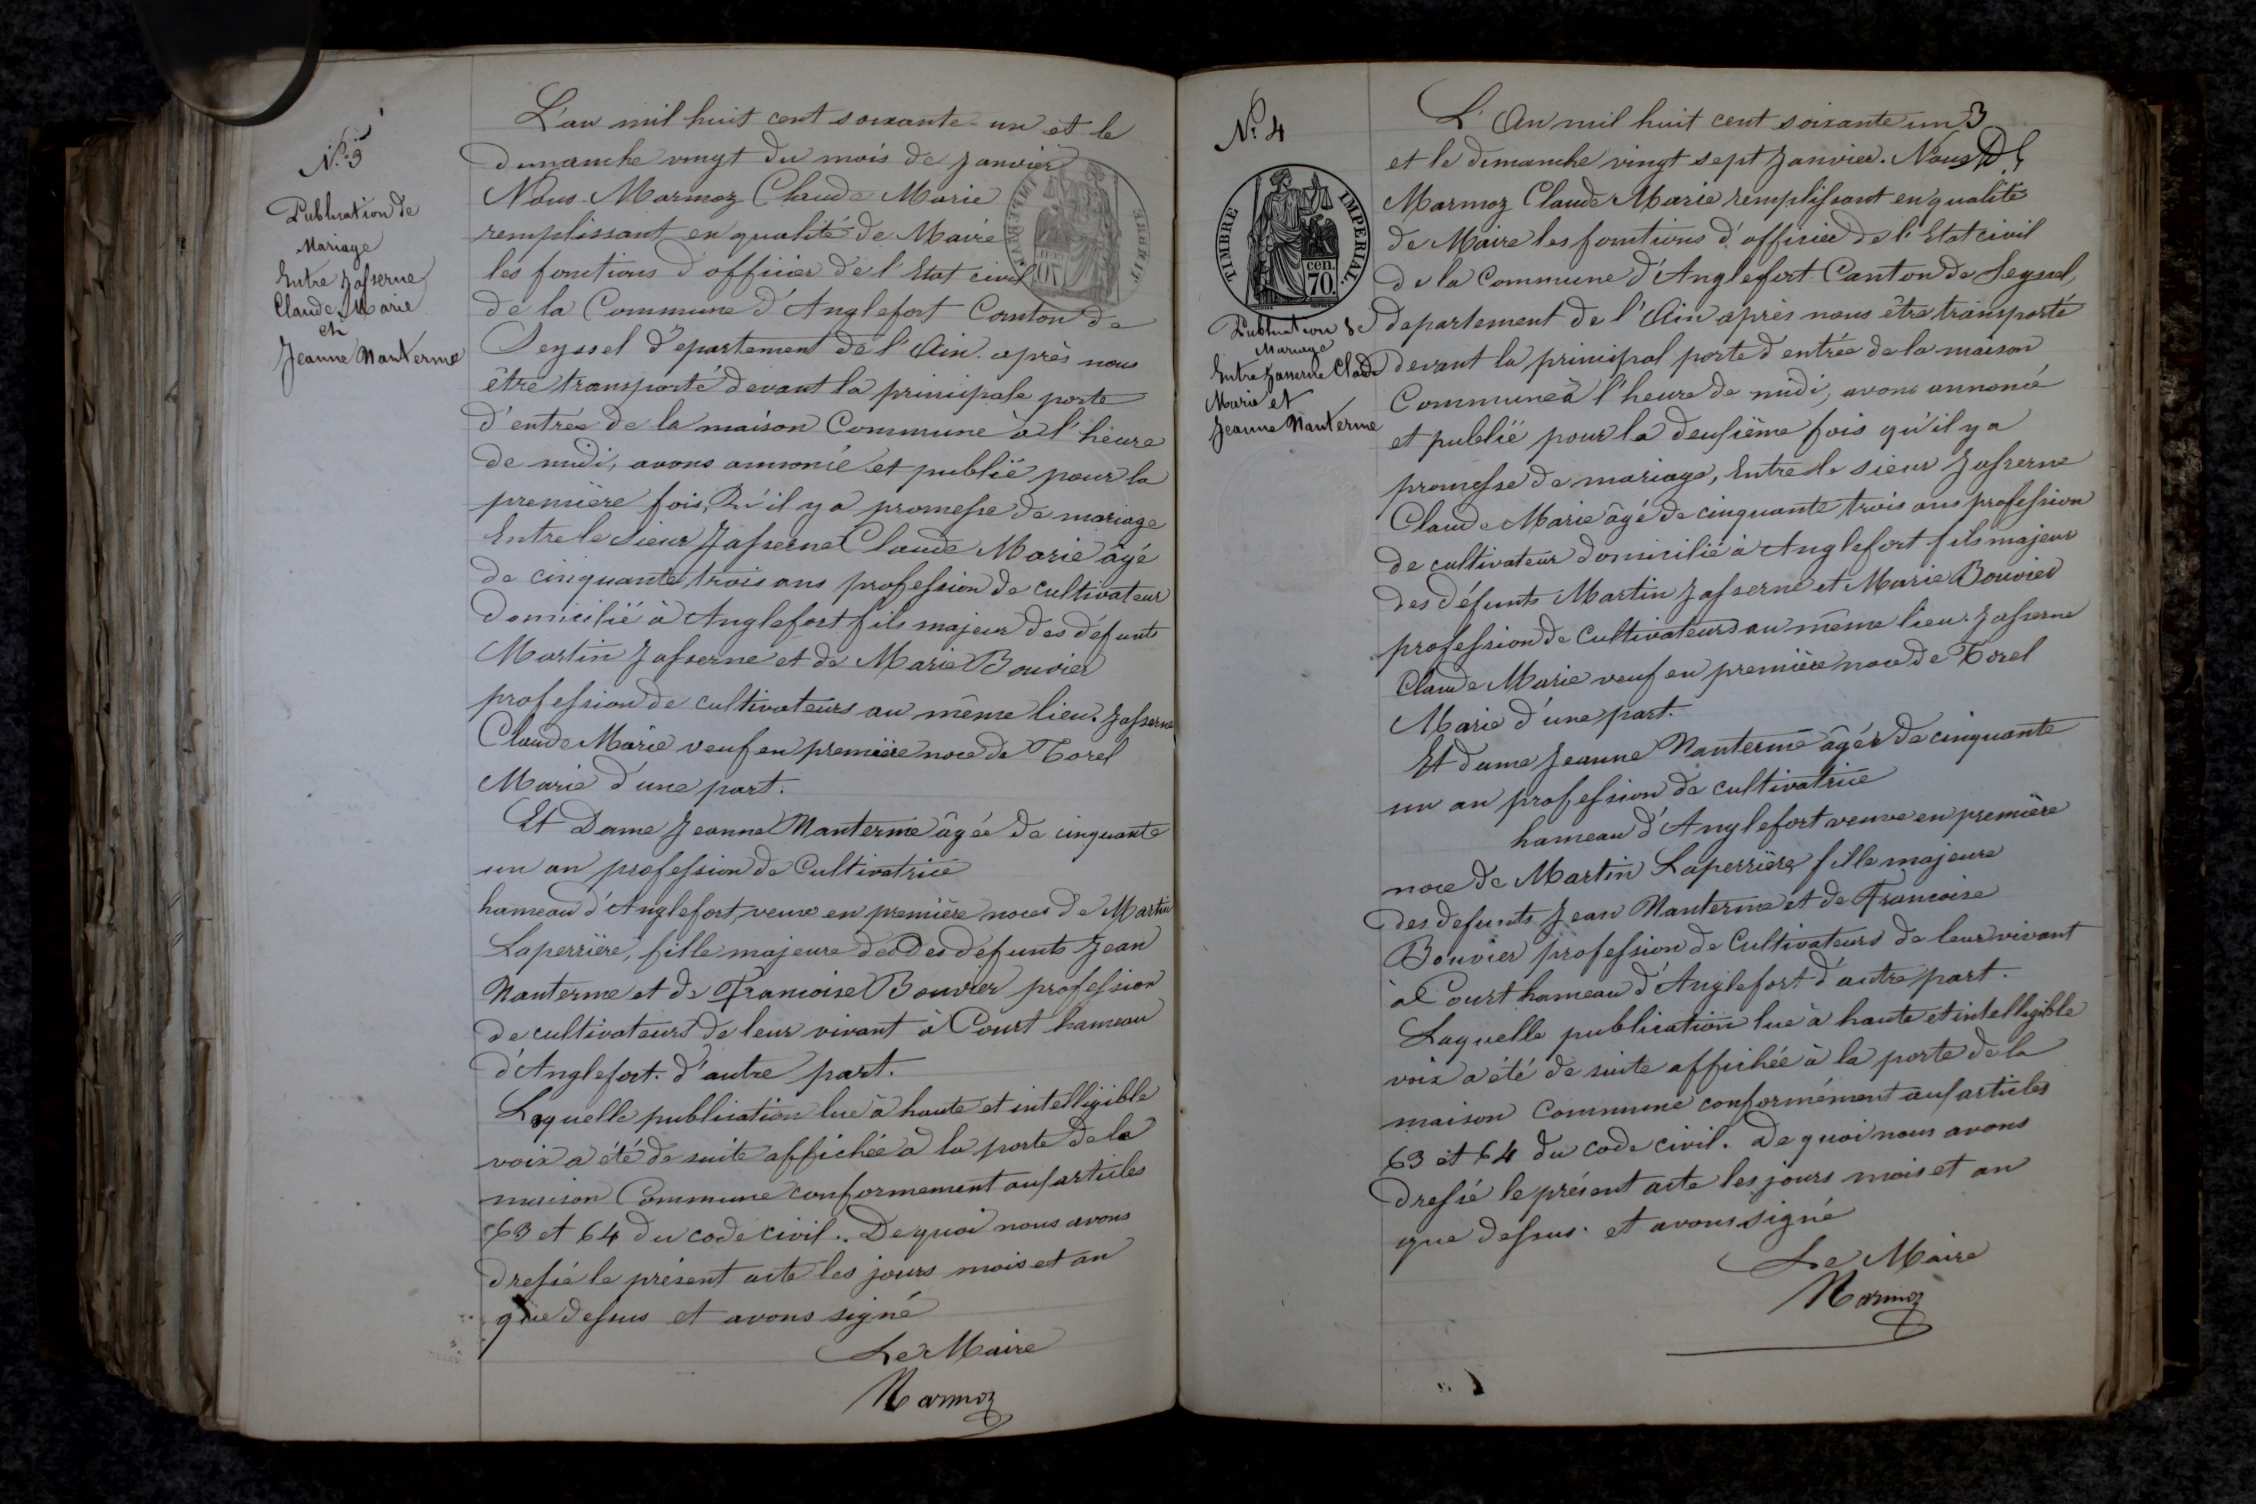 N.° 3
Publication de
Mariage
Entre Jasserne
Claude Marie
et
Jeanne Nanterme
L'an mil huit cent soixante un et le
dimanche vingt du mois de Janvier
Nous Marmoz Claude Marie
remplissant en qualité de Maire
les fonctions d'officier de l'Etat civil
de la Commune d'Anglefort Canton de
Seyssel département de l'Ain après nous
être transporté devant la principale porte
d'entrée de la maison Commune à l'heure
de midi, avons annoncé et publié pour la
première fois, Qu'il y a promesse de mariage
Entre le sieur Jasserne Claude Marie âgé
de cinquante trois ans profession de cultivateur
domicilié à Anglefort fils majeur des défunts
Martin Jasserne et de Marie Bouvier
profession de cultivateurs au même lieu. Jasserne
Claude Marie veuf en première noce de Torel
Marie d'une part.
Et Dame Jeanne Nanterme âgée de cinquante
un an profession de Cultivatrice
hameau d'Anglefort, veuve en première noces de Martin
Laperrière, fille majeure des défunts Jean
Nanterme et de Francoise Bouvier profession
de cultivateurs de leur vivant à Court hameau
d'Anglefort. d'autre part.
Laquelle publication lue à haute et intelligible
voix a été de suite affichée à la porte de la
maison Commune conformement aux articles
63 et 64 du code civil. De quoi nous avons
dressé le présent acte les jours mois et an
que dessus et avons signé
Le Maire
Marmoz
N.° 4
TIMBRE IMPERIAL
cen.
70.
Publication de
Mariage
Entre Jasserne Claude
Marie et
Jeanne Nanterme
L'An mil huit cent soixante un 3
et le dimanche vingt sept Janvier. Nous
Marmoz Claude Marie remplissant en qualité
de Maire les fonctions d'officier de l'Etat civil
de la Commune d'Anglefort Canton de Seyssel,
departement de l'Ain après nous être transporté
devant la principal porte d'entrée de la maison
Commune à l'heure de midi, avons annoncé
et publié pour la deusième fois qu'il y a
promesse de mariage, Entre le sieur Jasserne
Claude Marie âgé de cinquante trois ans profession
de cultivateur domicilié à Anglefort fils majeur
des défunts Martin Jasserne et Marie Bouvier
profession de cultivateurs au même lieu. Jasserne
Claude Marie veuf en première noce de Torel
Marie d'une part.
Et dame Jeanne Nanterme âgée de cinquante
un an profession de cultivatrice
hameau d'Anglefort veuve en première
noce de Martin Laperrière, fille majeure
des defunts Jean Nanterme et de Francoise
Bouvier profession de Cultivateurs de leur vivant
à Court hameau d'Anglefort d'autre part.
Laquelle publication lue à haute et intelligible
voix a été de suite affichée à la porte de la
maison Commune conformément aux articles
63 et 64 du code civil. De quoi nous avons
dressé le présent acte les jours mois et an
que dessus. et avons signé
Le Maire
Marmoz